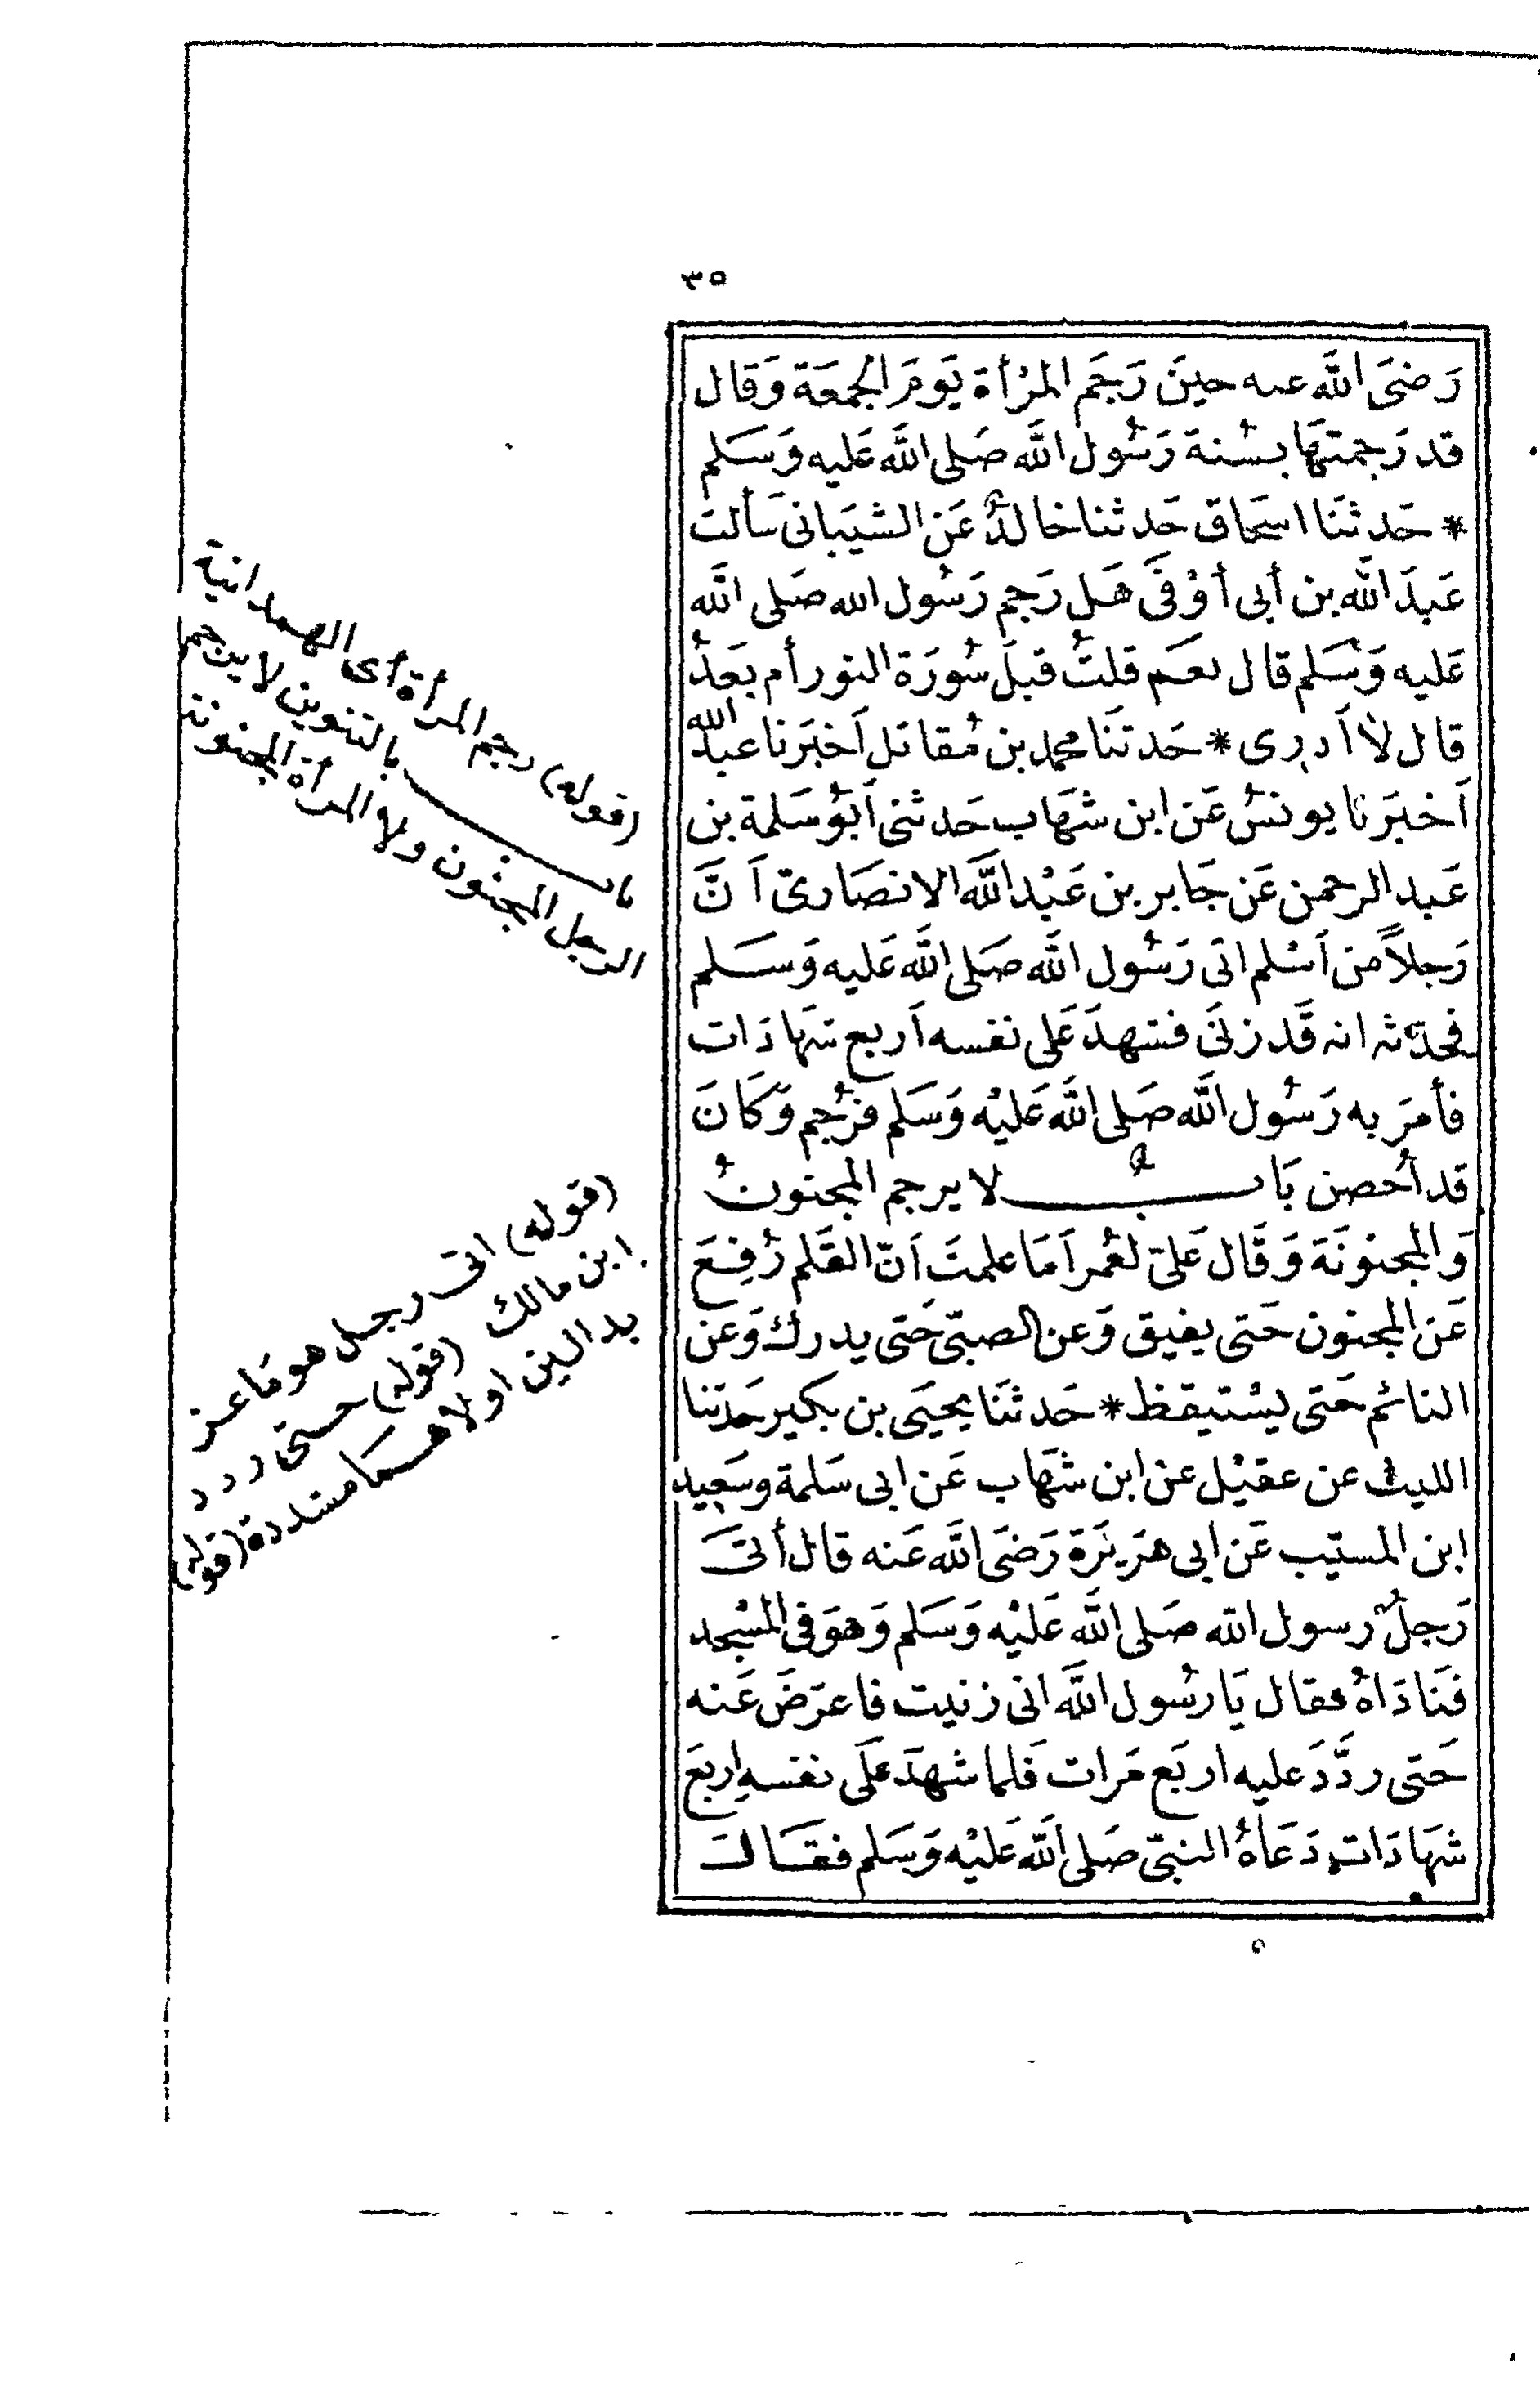 ٣٥
رَضىَ اللَّه عنه حينَ رَجَم المرْأة يَومَ الجمعَة وَقال
قد رَجمتهَا بسُنة رَسُول اللَّه صَلى اللَّه عَليه وَسَلم
* حَدثنَا اسحَاق حَدثنا خالدٌ عَن الشيبَانى سَألت
عَبدَ اللَّه بن أبى أوْفىَ هَل رَجم رَسُول الله صَلى اللَّه
عَليه وَسَلم قال نعَم قلتُ قبلَ سُورَة النور أم بعَدُ
قال لا أدرى * حَدثنَا محمد بن مُقاتل أخبَرنا عبدُ الله
أخبَرنا يونسُ عَن ابن شهَاب حَدثنى أبُو سَلمة بن
عَبد الرحمن عَن جَابر بن عَبْد اللَّه الانصَارىّ أنَّ
رَجلاً من أسْلم اتى رَسُول اللَّه صَلى اللَّه عَليه وَسَلم
فحدّثه انه قَد زنىَ فشهدَ عَلى نفسه أربع شهَادَات
فأمَر به رَسُول اللَّه صَلى اللَّه عَليْه وَسَلم فرُجم وَكَانَ
قد أُحصن بَاب لا يرجم المجنونُ
وَالمجنونَة وَقَال عَلىّ لعُمر أمَا علمتَ أنّ القَلم رُفِعَ
عَن المجنون حَتى يفيق وَعن الصبىّ حَتى يدرك وَعن
النائم حَتى يسْتيقظ * حَدثنَا يحيَى بن بكير حَدثنا
الليث عن عقيْل عن ابن شهَاب عَن ابى سَلمة وسَعيد
ابن المسيّب عَن ابى هرَيرَة رَضىَ اللَّه عَنه قال أتىَ
رَجلٌ رسول اللّه صَلى اللَّه عَليْه وَسَلم وَهوَ فى المسْجد
فنَادَاهُ فقال يَا رسُول اللَّه انى زنيت فاعرَضَ عَنه
حَتى ردَّدَ عليه اربَع مَرات فَلما شهدَ عَلَى نفسهِ اربعَ
شهَادَات دَعَاهُ النبىّ صَلى اللَّه عَليْه وَسَلم فقَال
(قوله) رجم المرأة أى الهمدانية
باب بالتنوين لا يرجم
الرجل المجنون ولا المرأة المجنونة
(قوله) اتى رجل هو مَاعز
ابن مالك (قوله) حتى ردد
بدالين اولاهمَا مشددة (قوله)